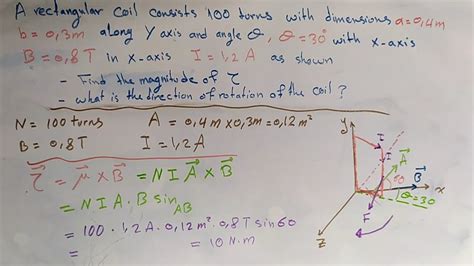 A rectangular coil consists 100 turns with dimensions a=0,4m
b=0,3m along Y axis and angle θ, θ=30° with x-axis
B=0,8T in x-axis I=1,2A as shown
- Find the magnitude of τ
- what is the direction of rotation of the coil?
N=100 turns A=0,4m×0,3m=0,12m²
B=0,8T I=1,2A
τ=μ×B=NIA×B
=NIA·B sin AB
=100·1,2A·0,12m²·0,8T sin60
= =10N·m
y
I
I
A
60
B
x
θ=30
F
Z